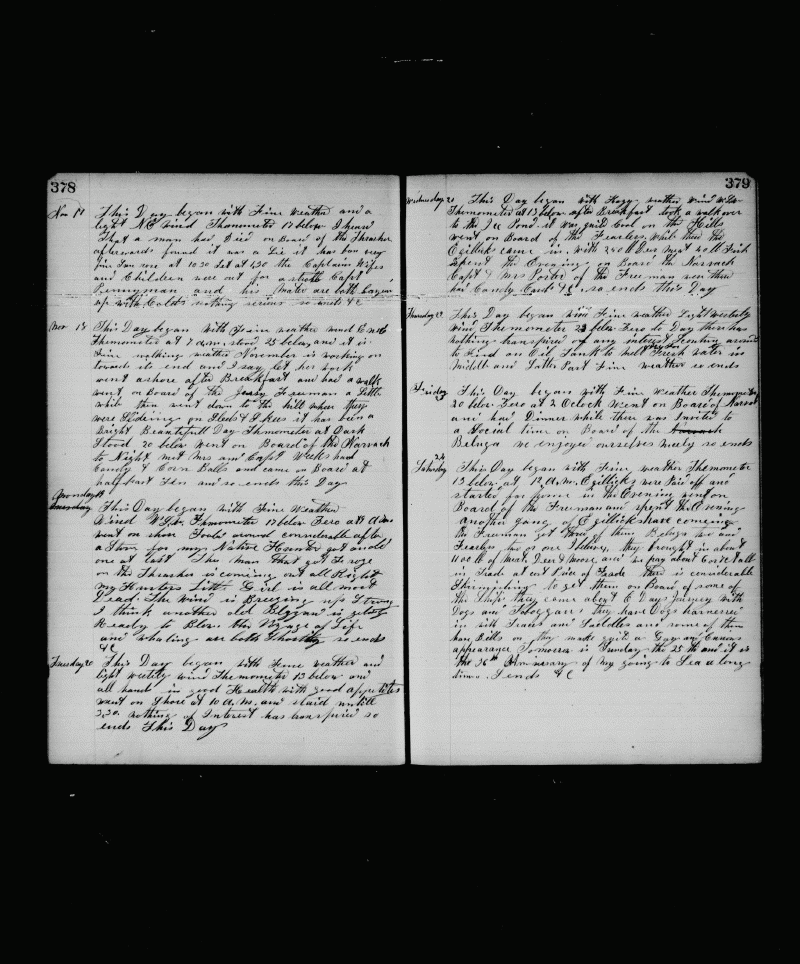 378
Nov 17 This Day began with Fine weather and a
light NE wind Thermometer 17 below I heard
That a man had Died on Board of the Thrasher
afterwards found it was a Lie it has been very
fine Sun rose at 10.30 Set at 1,30 the Captains Wifes
and Children were out for a stroll Capt
Pennyman and his Mate are both laying
up with Colds nothing serious so ends &c
Nov 18 This Day began with Fine weather wind
Thermometer at 7 a.m. stood 25 below and it is
Fine nothing weather November is working on
towards its end and I say let her work
went ashore after Breakfast and had a walk
went on Board of the Jessy Freeman a Little
while then went down to the hill where they
were Slideing on Sleds & Skees it has been a
Bright Beautifull Day Thermometer at Dark
Stood 20 below went on Board of the Narvach
to Night met Mrs and Capt Weeks had
Candy & Corn Balls and came on Board at
half past Ten and so ends this Day
Monday 19
This Day began with Fine Weather
Wind Thermometer 17 below Zero at
went on shore Took around considerable after
a Stove for my Native Hunter got an old
one at last The man that got Froze
on the Thrasher is coming out all Right
my Hunters Little Girl is all most
Dead. The wind is Breezing up Strong
I think another old is getting
Ready to Blow this Voyage of Life
and whaling are both so ends
&c
Tuesday 20 This Day began with Fine weather and
light westily wind Thermometer 13 below and
all hands in good Health with good appetites
went on Shore at 10 a.m. and staid untill
2,30. nothing of Interest has transpired so
ends This Day
379
Wednesday 21 This Day began with Hazy weather wind
Thermometer at 13 below after Breakfast took a walk over
to the Ice Pond it was quit Cool on the Hills
went on Board of the Fearless while there the
came in with 240 lb Deer meat 20 lb Fish
spent the Evening on Board the Narvach
Capt & Mrs Porter of the Freeman were there
had Candy &c so ends this Day
Thursday 22 This Day began with Fine weather Light westerly
wind Thermometer 23 below Zero to Day there has
nothing transpired of any interest Scouting around
to Find an Oil Tank to hold Fresh water in
Middle and Latter Part Fine weather so ends
Friday 23 This Day began with Fine Weather Thermometer
20 below Zero at 2 Oclock went on Board of Narvach
and had Dinner while there was Invited to
a Social time on Board of the
Beluga we enjoyed ourselves nicely so ends
24
Saturday This Day began with Fine weather Thermometer
13 below at 10 A.M. were Paid off and
started for home in the Evening went on
Board of the Freeman and spent the Evening
another gang of have come in
the Freeman got three of them Beluga two and
Fearless two or one I believe, they brought in about
1100 lb of meat, Deer & Moose, and we pay about
in Trade at cost Price of Trade there is considerable
to get them on Board of some of
the Ships they came about 6 Days Journey with
Dogs and Toboggans They have Dogs harnessed
in with Traces and Saddles and some of them
have Bells on, they made quit a Gay and Curious
appearance Tomorrow is Sunday the 25th and it is
the 36th Anniversary of my going to Sea a long
time. I ends &c